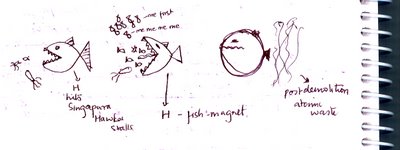 me first
me me me me
H
hits
Singapura
Hawker
Stalls
H - fish-magnet
post-demolition
atomic
waste